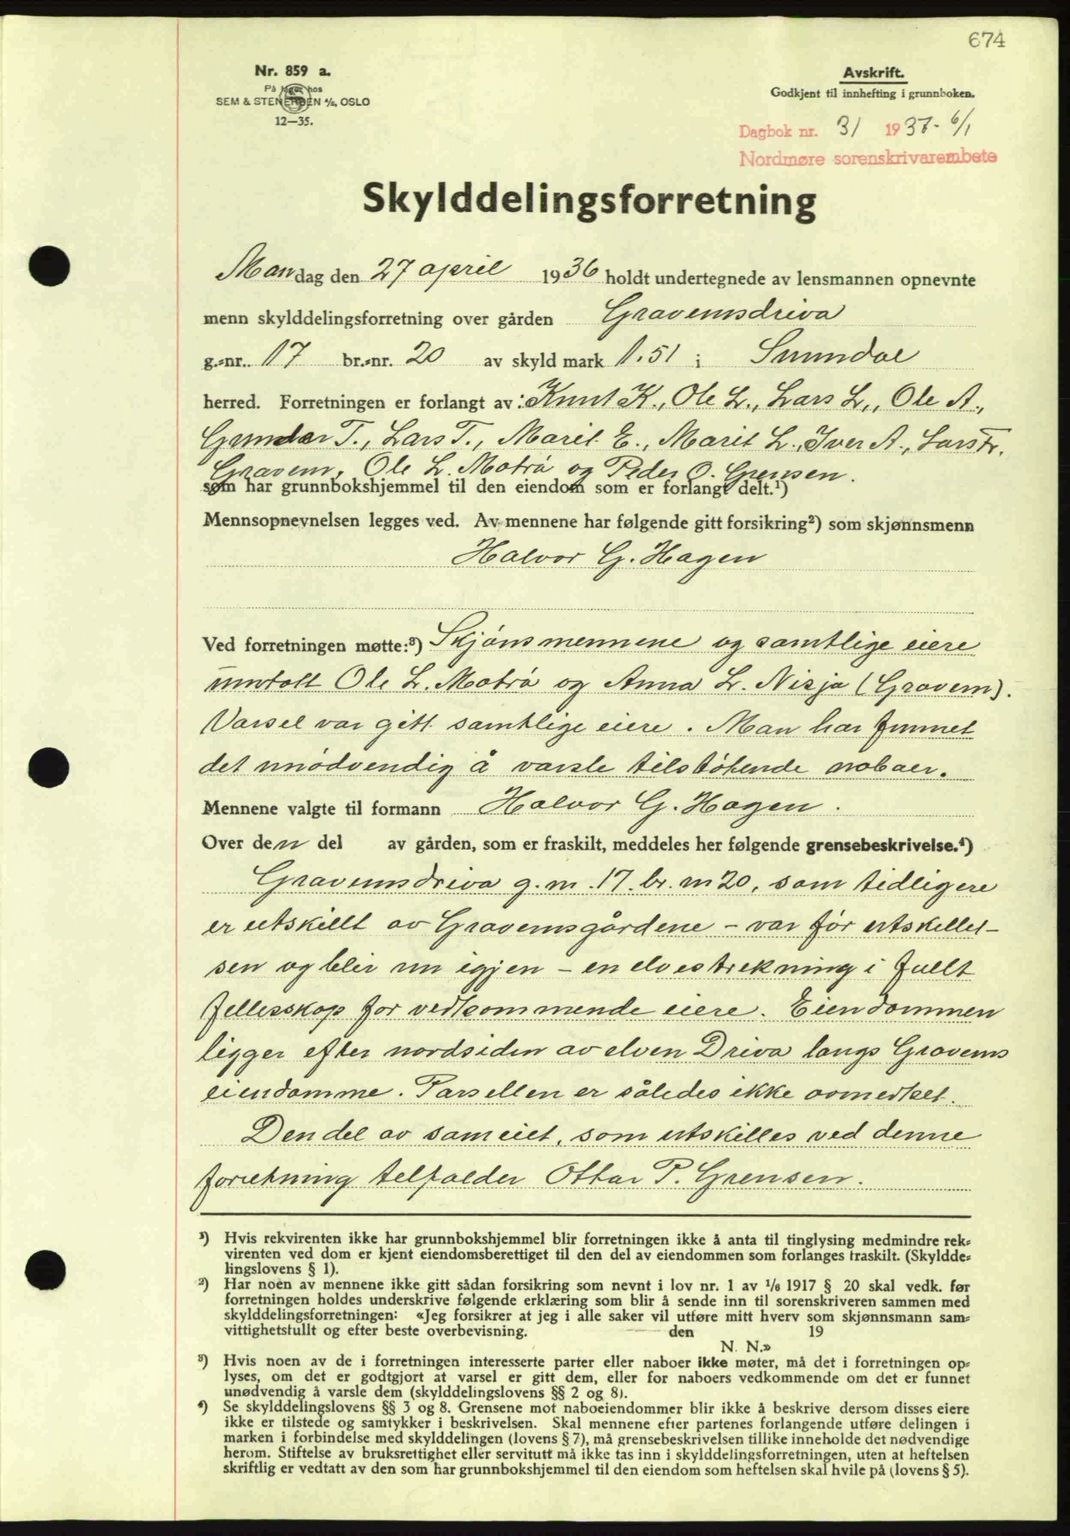 674
Nr. 859 a.
På lager hos
SEM & STENERSEN A/S, OSLO
12—35.
Avskrift.
Godkjent til innhefting i grunnboken.
Dagbok nr. 31 1937- 6/1
Nordmøre sorenskrivarembete
Skylddelingsforretning
Mandag den 27 april 1936 holdt undertegnede av lensmannen opnevnte
menn skylddelingsforretning over gården Gravemsdriva
g.-nr. 17 br.-nr. 20 av skyld mark 1.51 i Sunndal
herred. Forretningen er forlangt av: Knut K., Ole L., Lars L., Ole A.,
Gunder T., Lars T., Marit E., Marit L., Iver A., Lars Fr.
Gravem, Ole L. Motrø og Peder O. Grensen.
som har grunnbokshjemmel til den eiendom som er forlangt delt.¹)
Mennsopnevnelsen legges ved. Av mennene har følgende gitt forsikring²) som skjønnsmenn
Halvor G. Hagen
Ved forretningen møtte:³) Skjönsmennene og samtlige eiere
unntatt Ole L. Motrø og Anna L. Nisja (Gravem).
Varsel var gitt samtlige eiere. Man har funnet
det unödvendig å varsle tilstötende naboer.
Mennene valgte til formann Halvor G. Hagen.
Over den del av gården, som er fraskilt, meddeles her følgende grensebeskrivelse.⁴)
Gravemsdriva g.nr. 17. br.nr 20, som tidligere
er utskillt av Gravemsgårdene - var för utskillel-
sen og blir nu igjen - en elvestrekning i fullt
fellesskap for vedkommende eiere. Eiendommen
ligger efter nordsiden av elven Driva langs Gravems
eiendomme. Parsellen er således ikke avmerket.
Den del av sameiet, som utskilles ved denne
forretning tilfalder Ottar P. Grensen.
¹) Hvis rekvirenten ikke har grunnbokshjemmel blir forretningen ikke å anta til tinglysing medmindre rek-
virenten ved dom er kjent eiendomsberettiget til den del av eiendommen som forlanges fraskilt. (Skyldde-
lingslovens § 1).
²) Har noen av mennene ikke gitt sådan forsikring som nevnt i lov nr. 1 av 1/6 1917 § 20 skal vedk. før
forretningen holdes underskrive følgende erklæring som blir å sende inn til sorenskriveren sammen med
skylddelingsforretningen: «Jeg forsikrer at jeg i alle saker vil utføre mitt hverv som skjønnsmann sam-
vittighetsfullt og efter beste overbevisning. den 19
N. N.»
³) Hvis noen av de i forretningen interesserte parter eller naboer ikke møter, må det i forretningen op-
lyses, om det er godtgjort at varsel er gitt dem, eller for naboers vedkommende om det er funnet
unødvendig å varsle dem (skylddelingslovens §§ 2 og 8).
⁴) Se skylddelingslovens §§ 3 og 8. Grensene mot naboeiendommer blir ikke å beskrive dersom disses eiere
ikke er tilstede og samtykker i beskrivelsen. Skal mennene efter partenes forlangende utføre delingen i
marken i forbindelse med skylddelingen (lovens § 7), må grensebeskrivelsen tillike inneholde det nødvendige
herom. Stiftelse av bruksrettighet eller servitutt må ikke tas inn i skylddelingsforretningen, uten at heftelsen
skriftlig er vedtatt av den som har grunnbokshjemmel til den eiendom som heftelsen skal hvile på (lovens § 5).